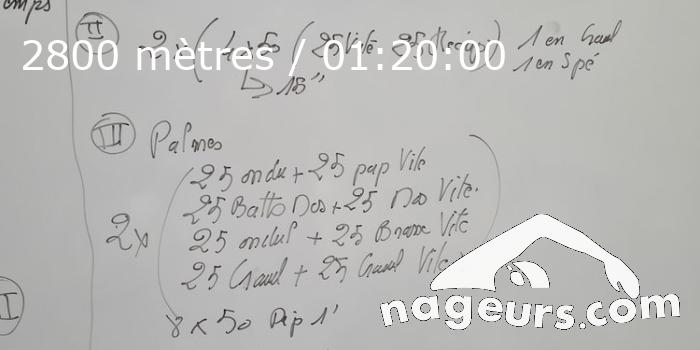 emps
II 2 x ( 4 x 50 ( 25 Vite 25 Récup) 1 en Crawl
2800 mètres / 01:20:00
1 en Spé
↳ 15"
III Palmes
25 ondu + 25 pap Vite
25 Batts Dos + 25 Dos Vite.
2x
25 ondul + 25 Brasse Vite
25 Crawl + 25 Crawl Vite
8 x 50 Dép 1'
I
nageurs.com